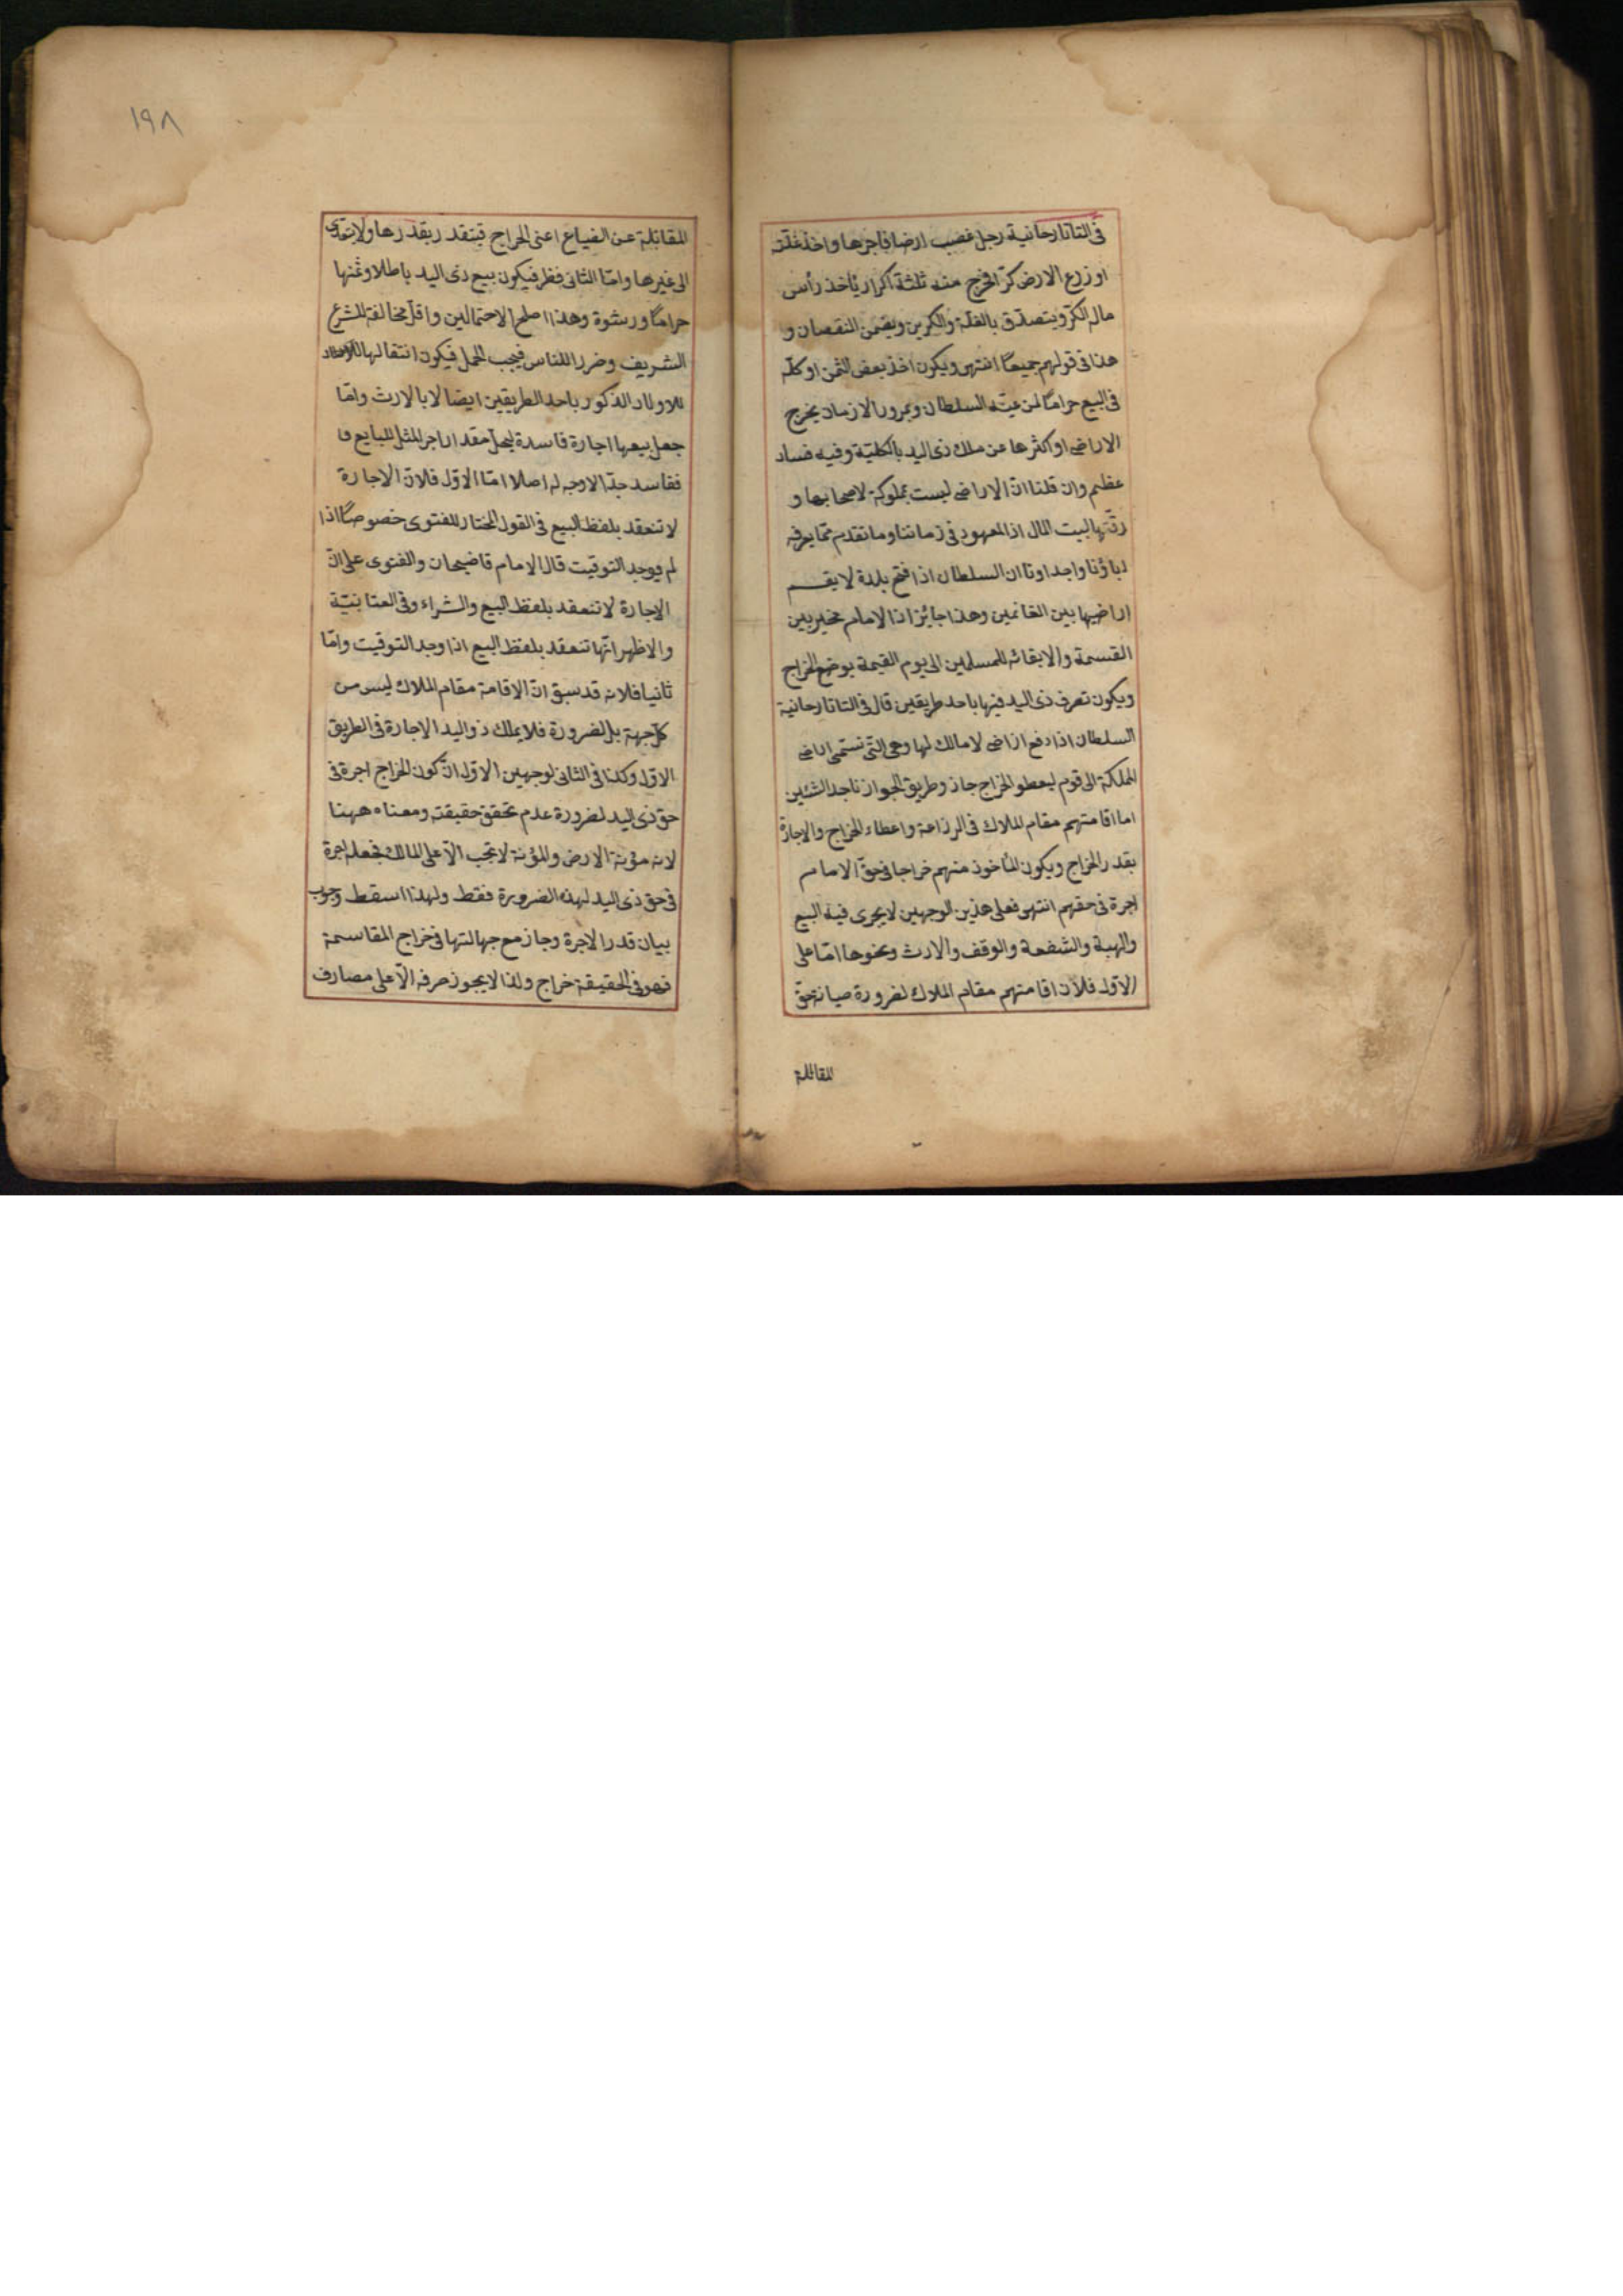 في التاتارخانية رجل غصب ارضا فاجرها واخذ غلته
او زرع الارض كرّا فخرج منه ثلثة اكرار يأخذ رأس
مال الكرّ ويتصدّق بالغلة والكرين ويضمن النقصان و
هذا في قولهم جميعًا انتهى ويكون اخذ بعض الثمن او كلّه
في البيع حرامًا لمن عيّنه السلطان وبمرور الازمان يخرج
الاراضى او اكثرها عن ملك ذى اليد بالكليّة وفيه فساد
عظيم وان قلنا انّ الاراضى ليست بمملوكة لاصحابها و
رقبتها لبيت المال اذ المعهود في زماننا وما تقدم ممّا يعرفه
اباؤنا واجدادنا ان السلطان اذا فتح بلدة لا يقسم
اراضيها بين الغانمين وهذا جايز اذ الامام مخير بين
القسمة والابقاء للمسلمين الى يوم القيمة بوضع الخراج
ويكون تصرف ذى اليد فيها باحد طريقين قال في التاتارخانية
السلطان اذا دفع اراضى لا مالك لها وهى التى تسمّى اراضى
المملكة الى قوم ليعطوا الخراج جاز وطريق الجواز باحد الشئين
اما اقامتهم مقام الملاك في الزراعة واعطاء الخراج والاجارة
بقدر الخراج ويكون المأخوذ منهم خراجا في حقّ الامام
اجرة في حقهم انتهى فعلى هذين الوجهين لا يجرى فيه البيع
والهبة والشفعة والوقف والارث ونحوها امّا على
الاوّل فلانّ اقامتهم مقام الملاك لضرورة صيانة حقّ
المقاتلة
١٩٨
المقاتلة عن الضياع اعنى الخراج فيتقدر بقدرها ولا يتعدى
الى غيرها وامّا الثانى فظر فيكون بيع ذى اليد باطلا وثمنها
حرامًا ورشوة وهذا اصلح الاحتمالين واقلّ مخالفة للشرع
الشريف وضررا للناس فيجب الحمل فيكون انتقالها
للاولاد الذكور باحد الطريقين ايضا لا بالارث وامّا
جعل بيعها اجارة فاسدة ليحلّ مقدار اجر المثل للبايع
ففاسد جدّا لا وجه له اصلا امّا الاوّل فلانّ الاجارة
لا تنعقد بلفظ البيع في القول المختار للفتوى خصوصًا اذا
لم يوجد التوقيت قال الامام قاضيخان والفتوى على انّ
الاجارة لا تنعقد بلفظ البيع والشراء وفي العتابيّة
والاظهر انّها تنعقد بلفظ البيع اذا وجد التوقيت وامّا
ثانيا فلانه قد سبق انّ الاقامة مقام الملاك ليس من
كلّ جهة بل لضرورة فلا يملك ذو اليد الاجارة في الطريق
الاوّل وكذا في الثانى لوجهين الاوّل انّ كون الخراج اجرة في
حقّ ذى اليد لضرورة عدم تحقق حقيقته ومعناه ههنا
لانه مؤنة الارض والمؤنة لا تجب الّا على المالك فجعله اجرة
في حق ذى اليد لهذه الضرورة فقط ولهذا اسقط وجوب
بيان قدر الاجرة وجاز مع جهالتها في خراج المقاسمة
فهو في الحقيقة خراج ولذا لا يجوز صرفه الّا على مصارف